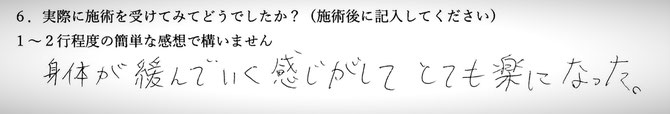 6．実際に施術を受けてみてどうでしたか？（施術後に記入してください）
1～2行程度の簡単な感想で構いません
身体が緩んでいく感じがして とても楽になった。